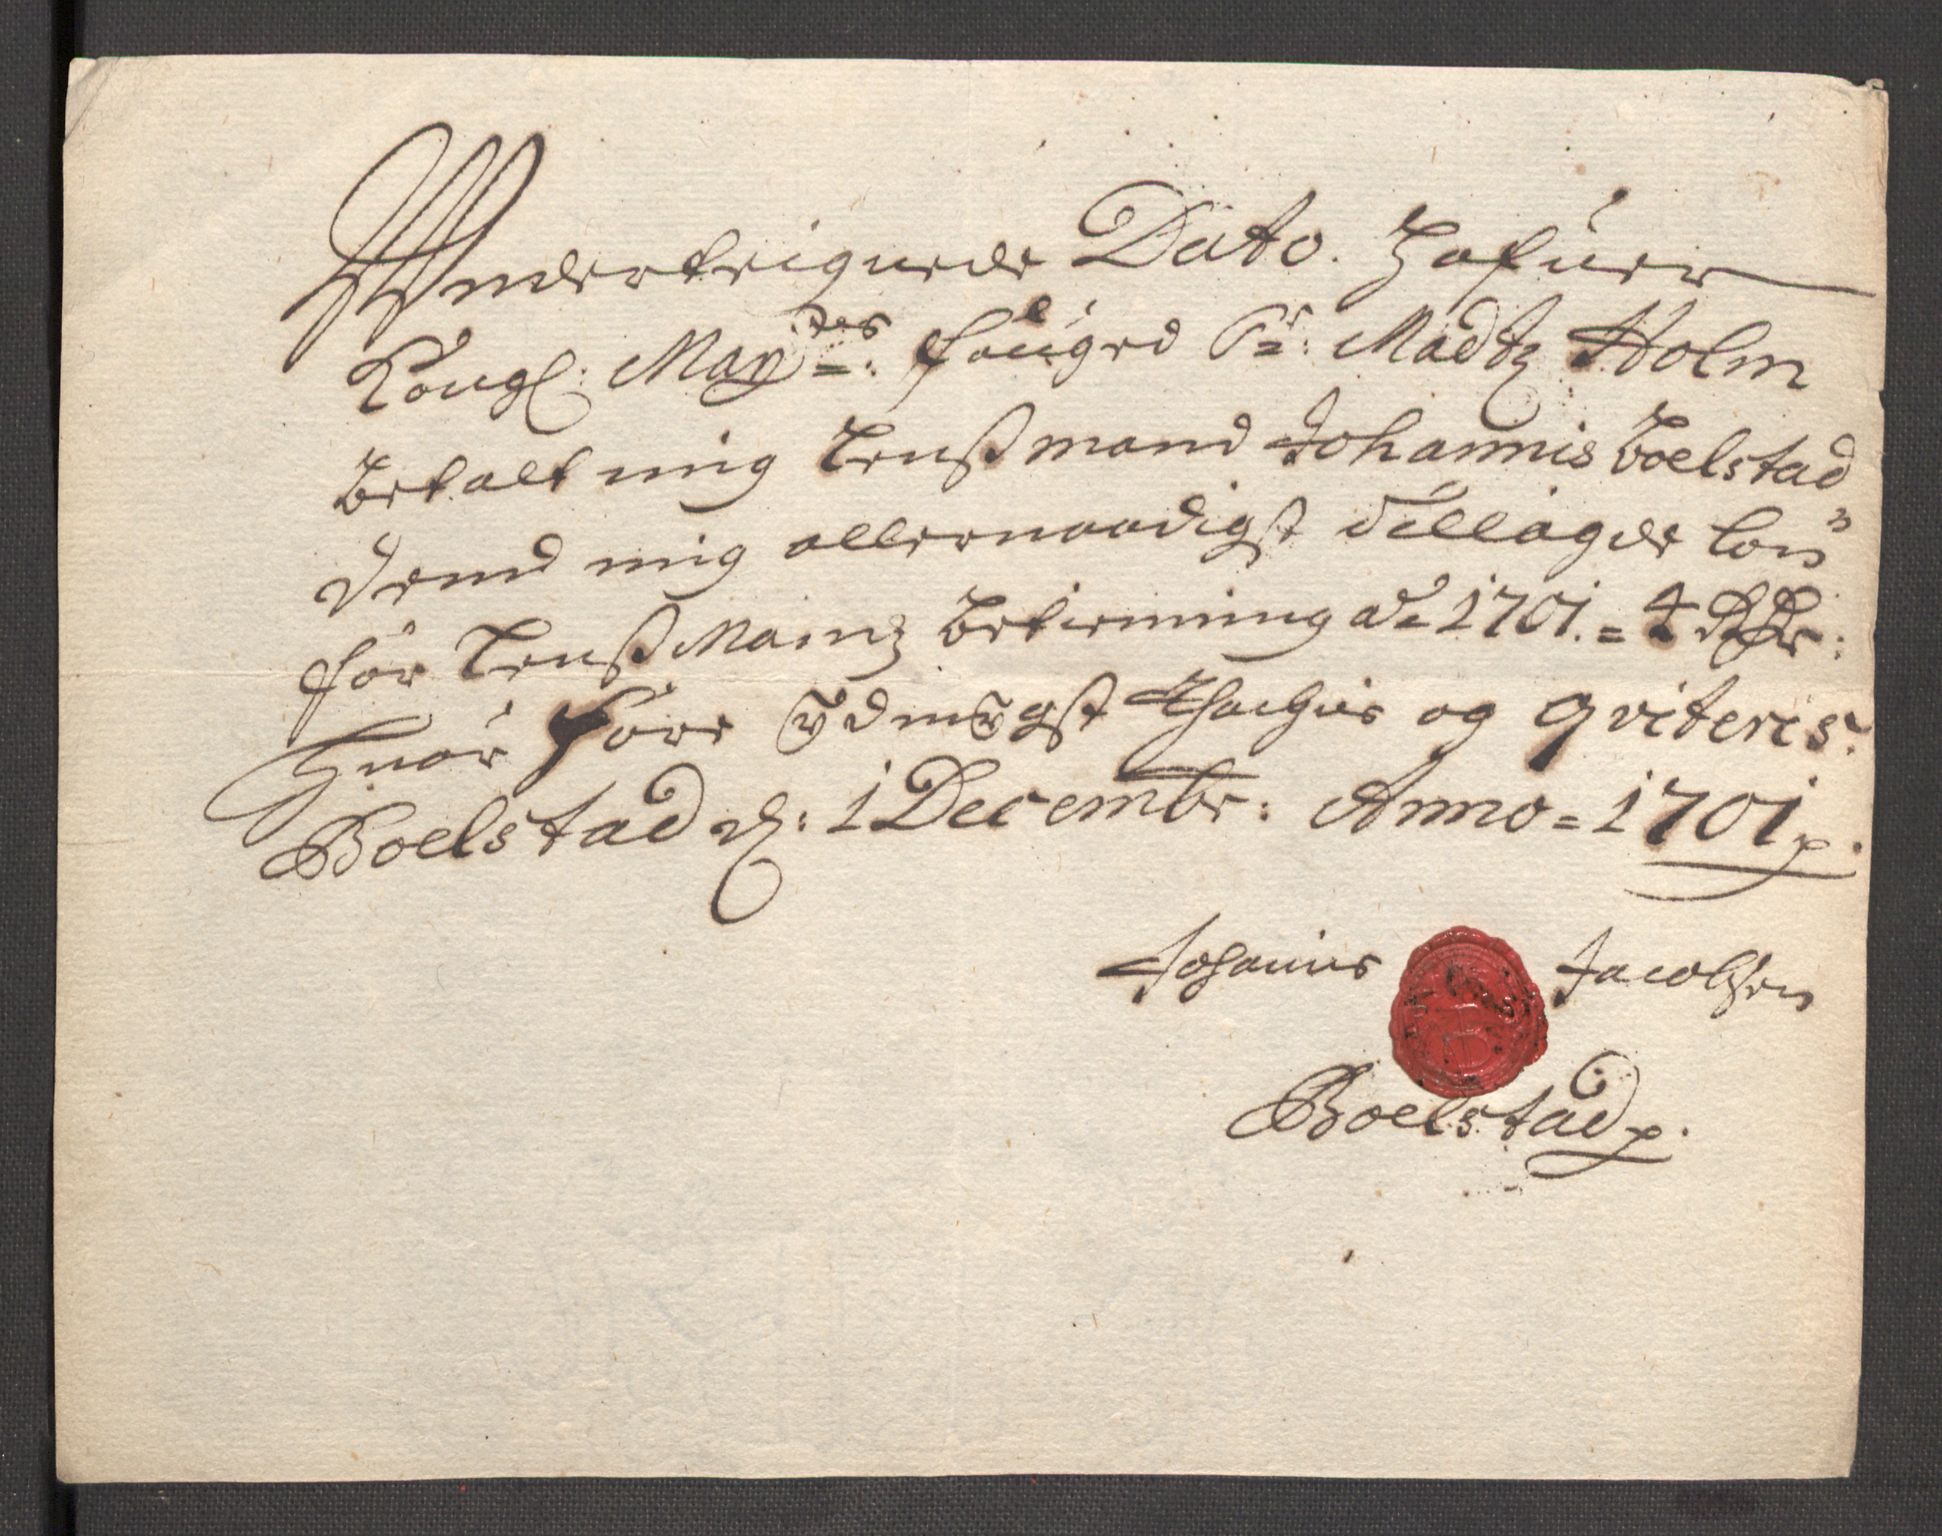 Underteignede Dato. Hafuer
Kongl: May:tes: fouged Sr: Madtz Holm
betalt mig Lenßmand Johannis boelstad
Dend mig allernaadigst tillagde løn
for Lenßmandz betienning de 1701. = 4 Rdr:
Huor fore ydmygst thackis og qviteris.
Boelstad d: 1 Decembr: Anno = 1701 p.
Johannis Jacobsen
Boelstad p.